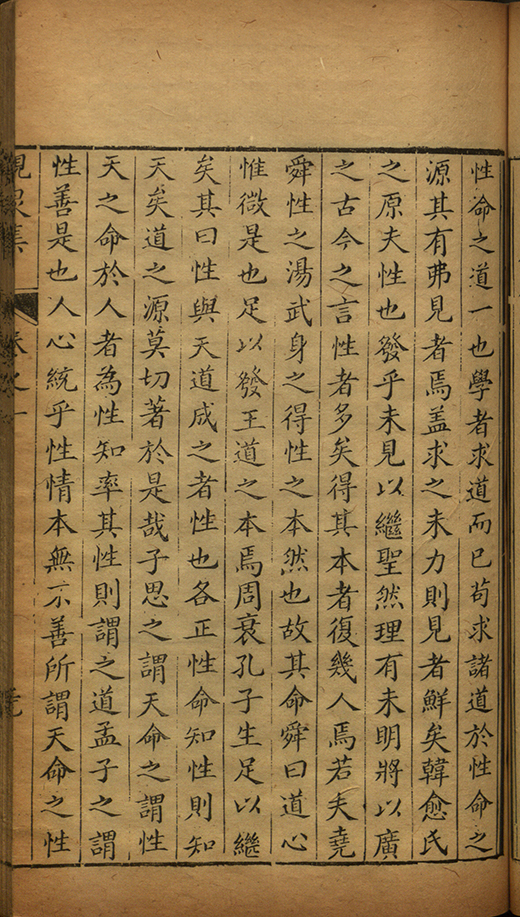 性命之道一也學者求道而已苟求諸道於性命之
源其有弗見者焉盖求之未力則見者鮮矣韓愈氏
之原夫性也發乎未見以繼聖然理有未明將以廣
之古今之言性者多矣得其本者復幾人焉若夫堯
舜性之湯武身之得性之本然也故其命舜曰道心
惟微是也足以發王道之本焉周衰孔子生足以繼
矣其曰性與天道成之者性也各正性命知性則知
天矣道之源莫切著於是哉子思之謂天命之謂性
天之命於人者為性知率其性則謂之道孟子之謂
性善是也人心統乎性情本無不善所謂天命之性